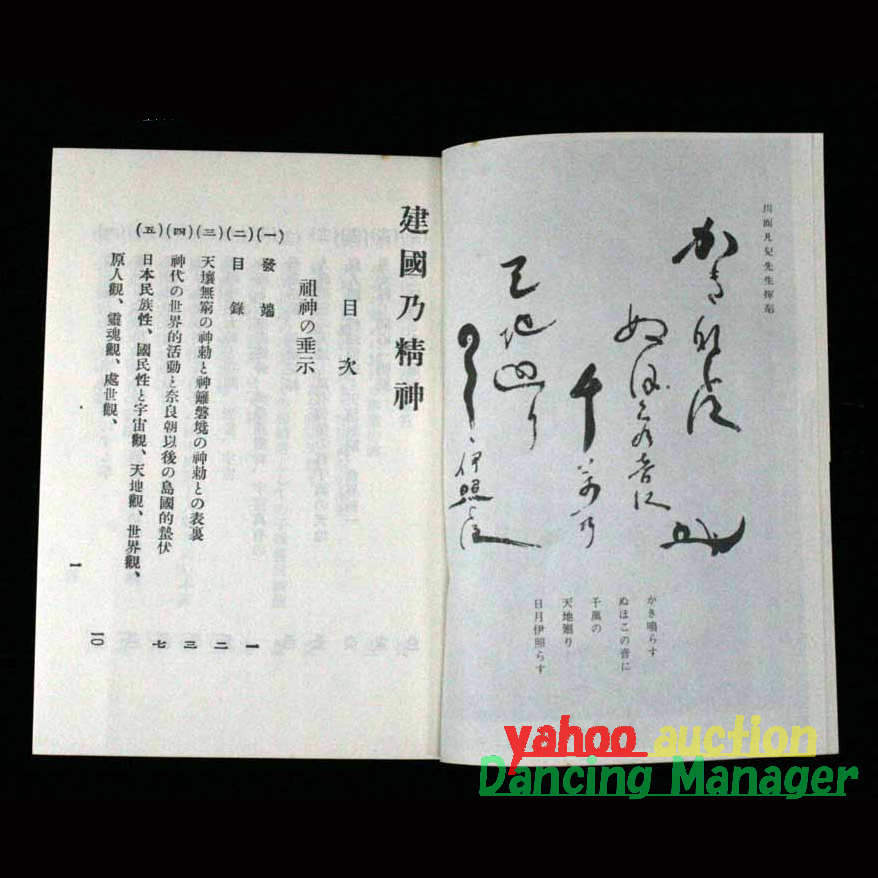 川面凡兒先生揮毫
かき鳴らす
ぬほこの音に
千萬の
天地廻り
日月伊照らす
建國乃精神
目次
祖神の垂示
(一)發端 一
(二)目錄 二
(三)天壤無窮の神勅と神籬磐境の神勅との表裏 三
(四)神代の世界的活動と奈良朝以後の島國的蟄伏 七
(五)日本民族性、國民性と宇宙觀、天地觀、世界觀、
原人觀、靈魂觀、處世觀、 10
1
yahoo auction
Dancing Manager